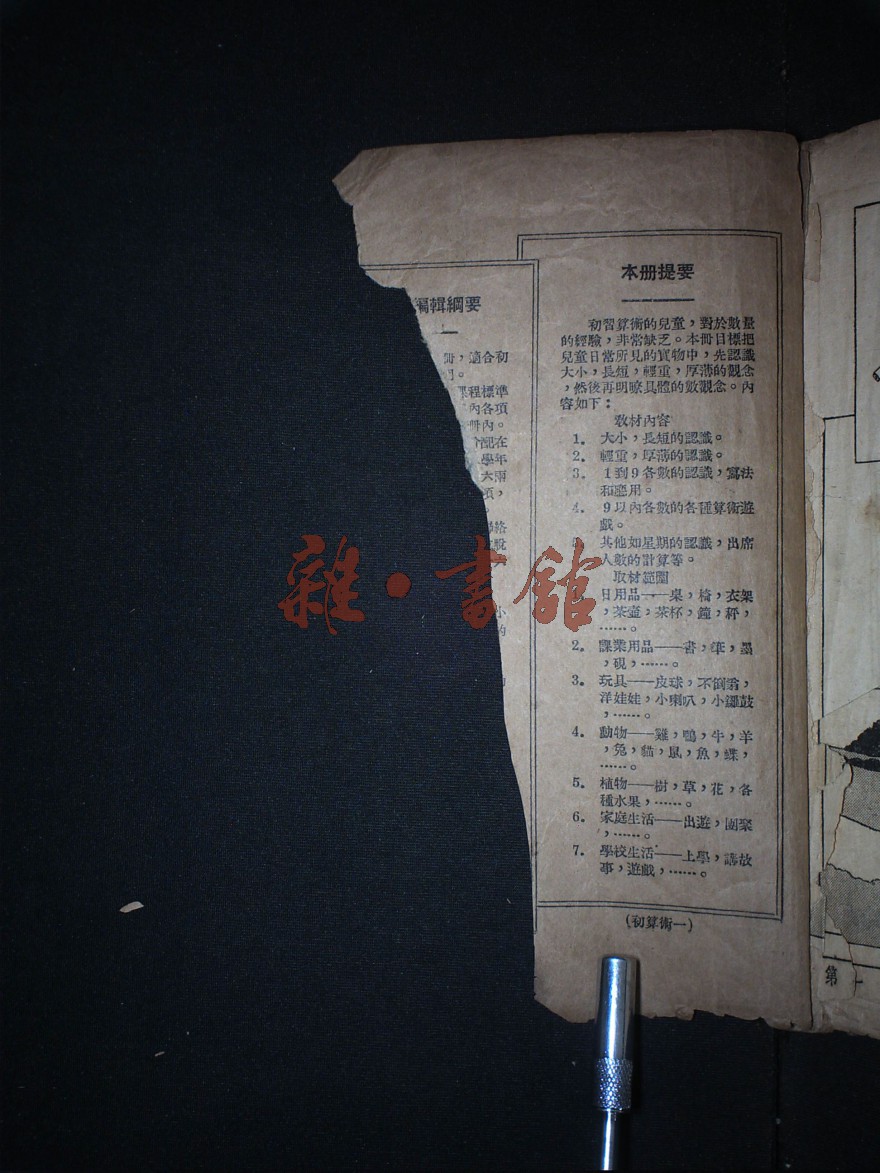 編輯綱要
冊,適合初
用。
課程標準
內各項
冊內。
配在
學年
大兩
項,
聯絡
小
的
本册提要
初習算術的兒童,對於數量
的經驗,非常缺乏。本冊目標把
兒童日常所見的實物中,先認識
大小,長短,輕重,厚薄的觀念
,然後再明瞭具體的數觀念。內
容如下:
教材內容
1. 大小,長短的認識。
2. 輕重,厚薄的認識。
3. 1到9各數的認識,寫法
和應用。
4. 9以內各數的各種算術遊
戲。
5. 其他如星期的認識,出席
人數的計算等。
取材範圍
日用品——桌,椅,衣架
,茶壺,茶杯,鐘,秤,
……。
2. 課業用品——書,筆,墨
,硯,……。
3. 玩具——皮球,不倒翁,
洋娃娃,小喇叭,小鑼鼓
,……。
4. 動物——雞,鴨,牛,羊
,兔,貓,鼠,魚,蝶,
……。
5. 植物——樹,草,花,各
種水果,……。
6. 家庭生活——出遊,團聚
,……。
7. 學校生活——上學,講故
事,遊戲,……。
(初算術一)
第一
雜·書館